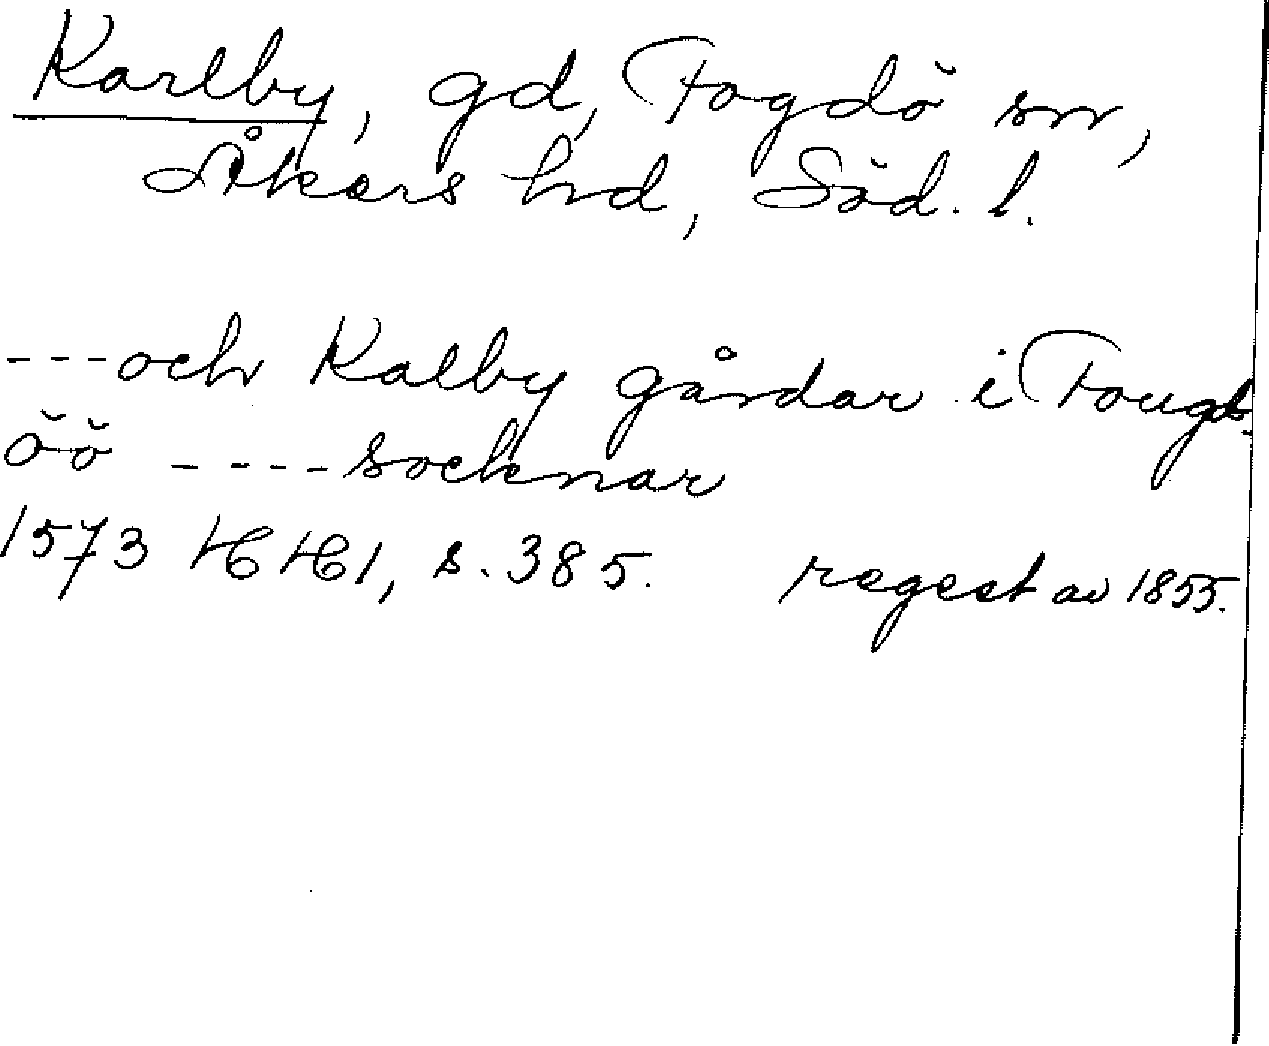 Karlby, gd, Fogdö sn,
Åkers hd, Söd. l.
---och Kalby gårdar i Fougd-
öö ----socknar
1573 HH1, s. 385. regest av 1855.